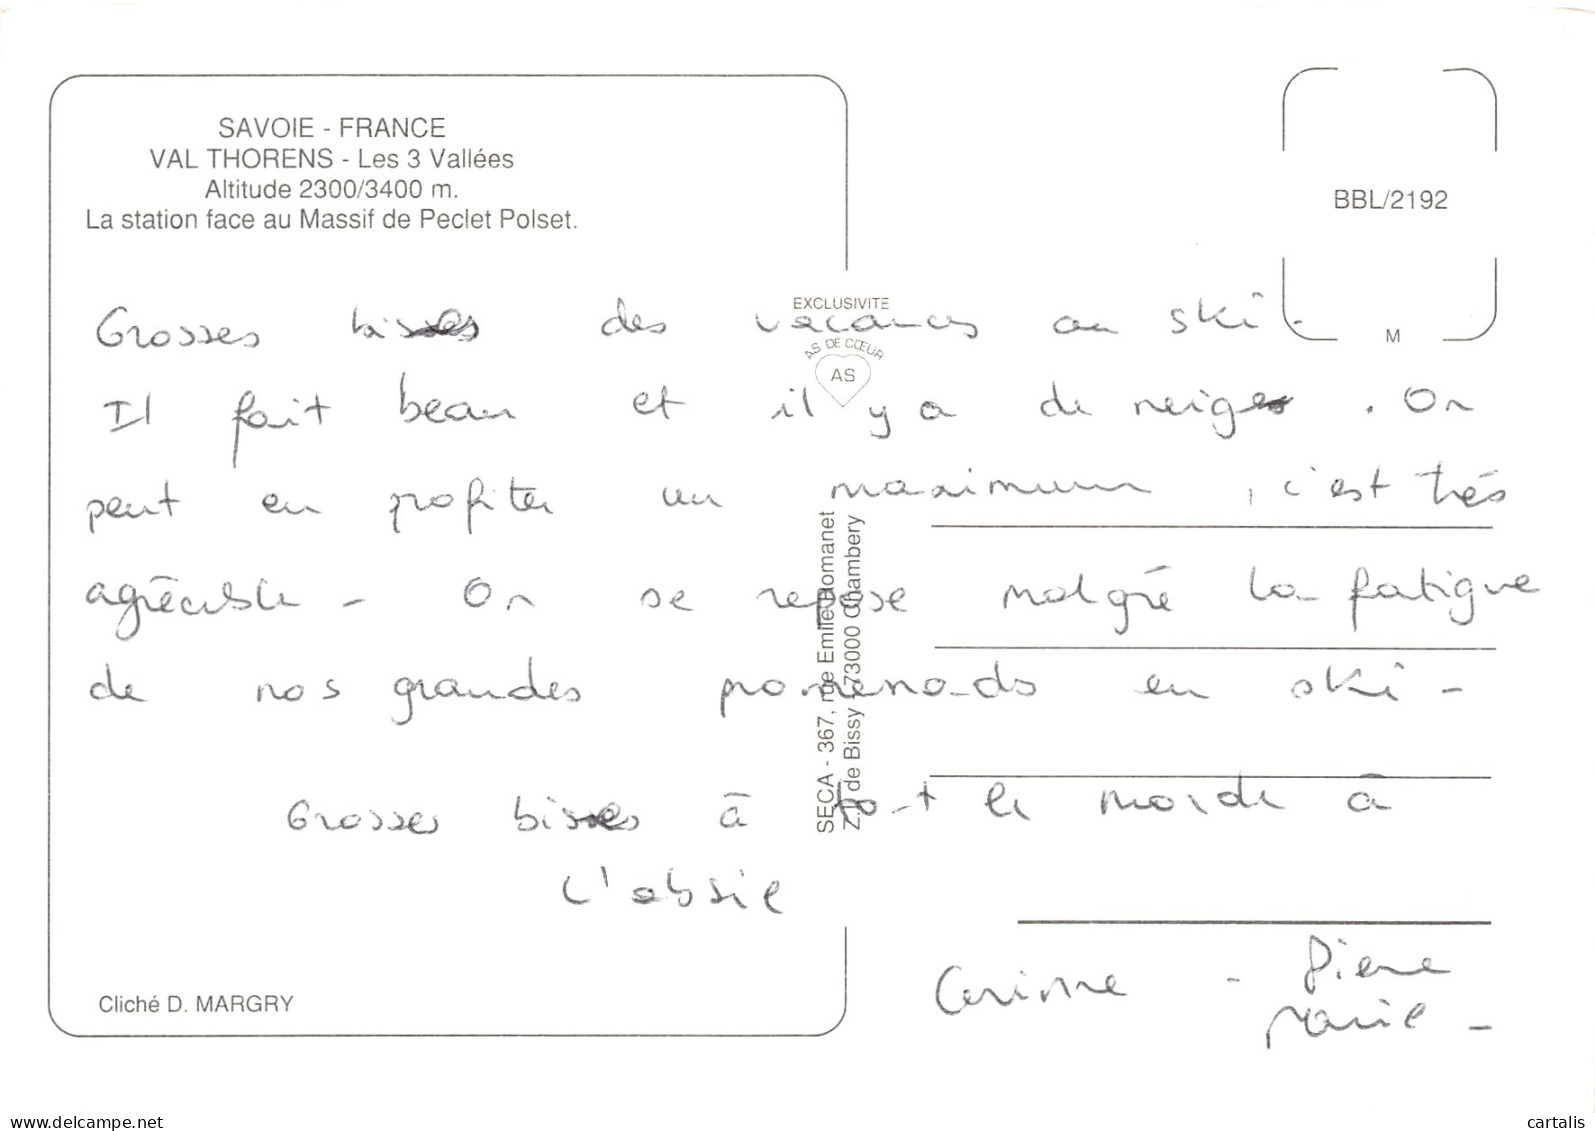 SAVOIE - FRANCE
VAL THORENS - Les 3 Vallées
Altitude 2300/3400 m.
La station face au Massif de Peclet Polset.
BBL/2192
M
EXCLUSIVITE
AS DE CŒUR
AS
Grosses bises des vacances au ski.
Il fait beau et il y a de neige. On
peut en profiter un maximum, c'est très
agréable - On se repose malgré la fatigue
de nos grandes promenads en ski -
Grosses bises à tout le monde à
L'absie
Corinne - Pierre
Marie -
SECA - 367, rue Emile Romanet
Z.I. de Bissy - 73000 Chambery
Cliché D. MARGRY
www.delcampe.net
cartalis